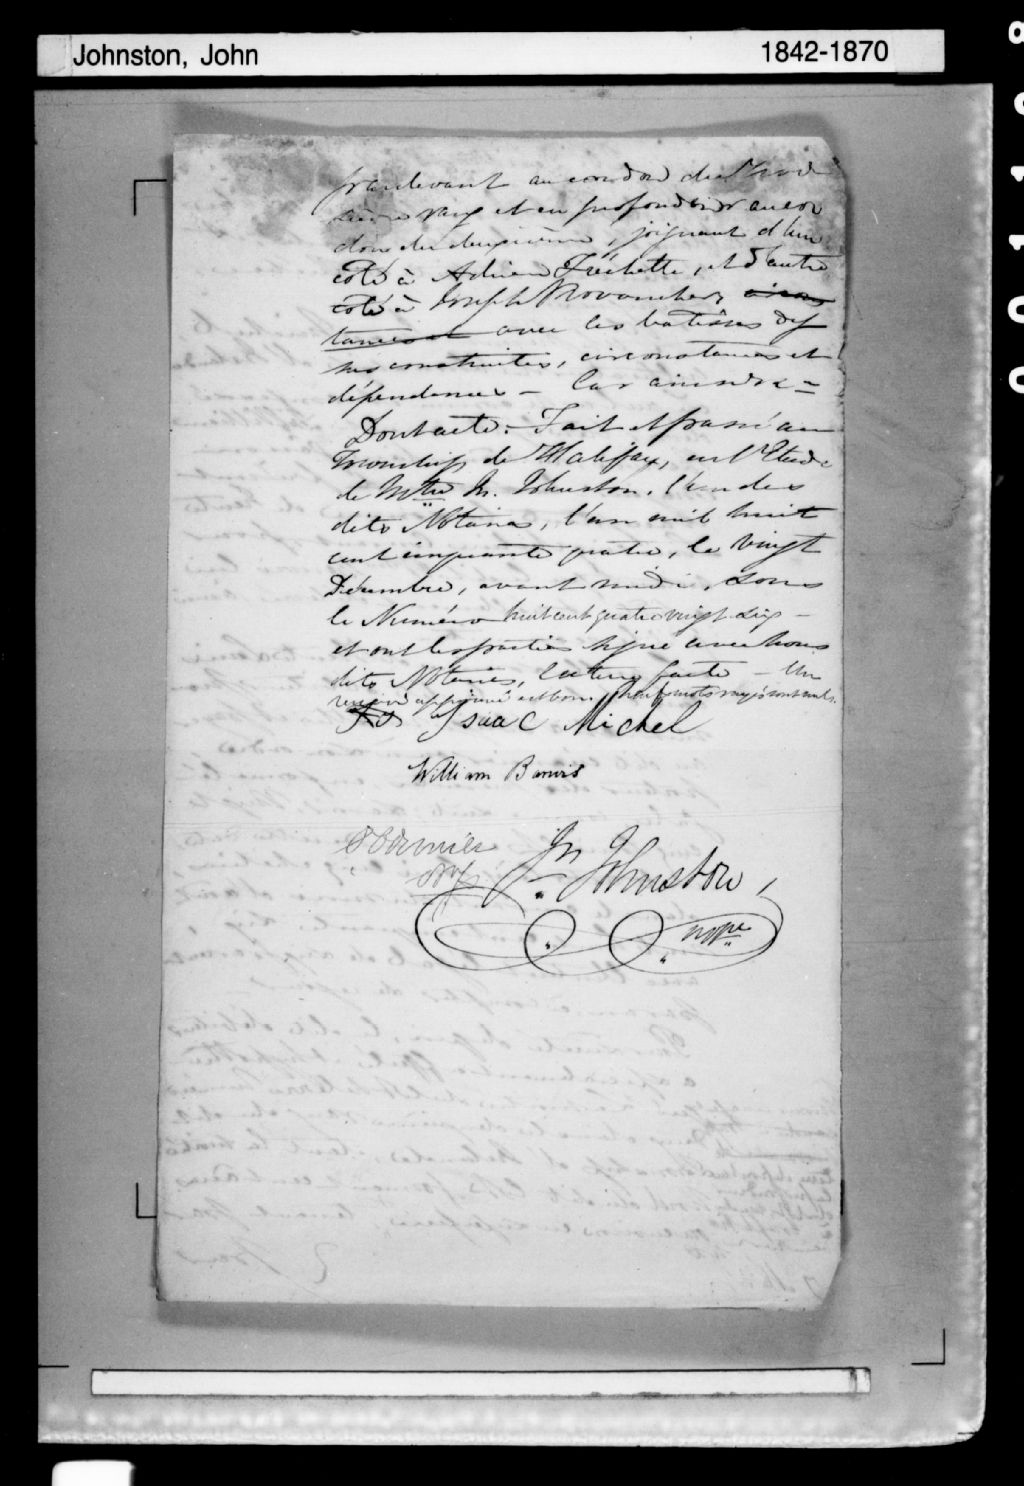 Johnston, John 1842-1870
par devant au cordon du
rang et en profondeur au cor
don du deuxième, joignant d'un
côté à Adrien Fréchette, et d'autre
côté à Joseph Provancher,
avec les batisses des
sus construites, circonstances et
dépendances — Car ainsi &c =
Dont acte. Fait et passé au
Township de Halifax, en l'Etude
de Mtre Jn. Johnston, l'un des
dits Notaires, l'an mil huit
cent cinquante quatre, le vingt
Décembre, avant midi, sous
le Numéro huit cent quatre vingt six —
et ont les parties signé avec nous
dits Notaires, lecture faite — Un
renvoi approuvé est bon, mots rayés sont nuls.
Isaac Michel
William Barwis
Jn Johnston,
NP
0018